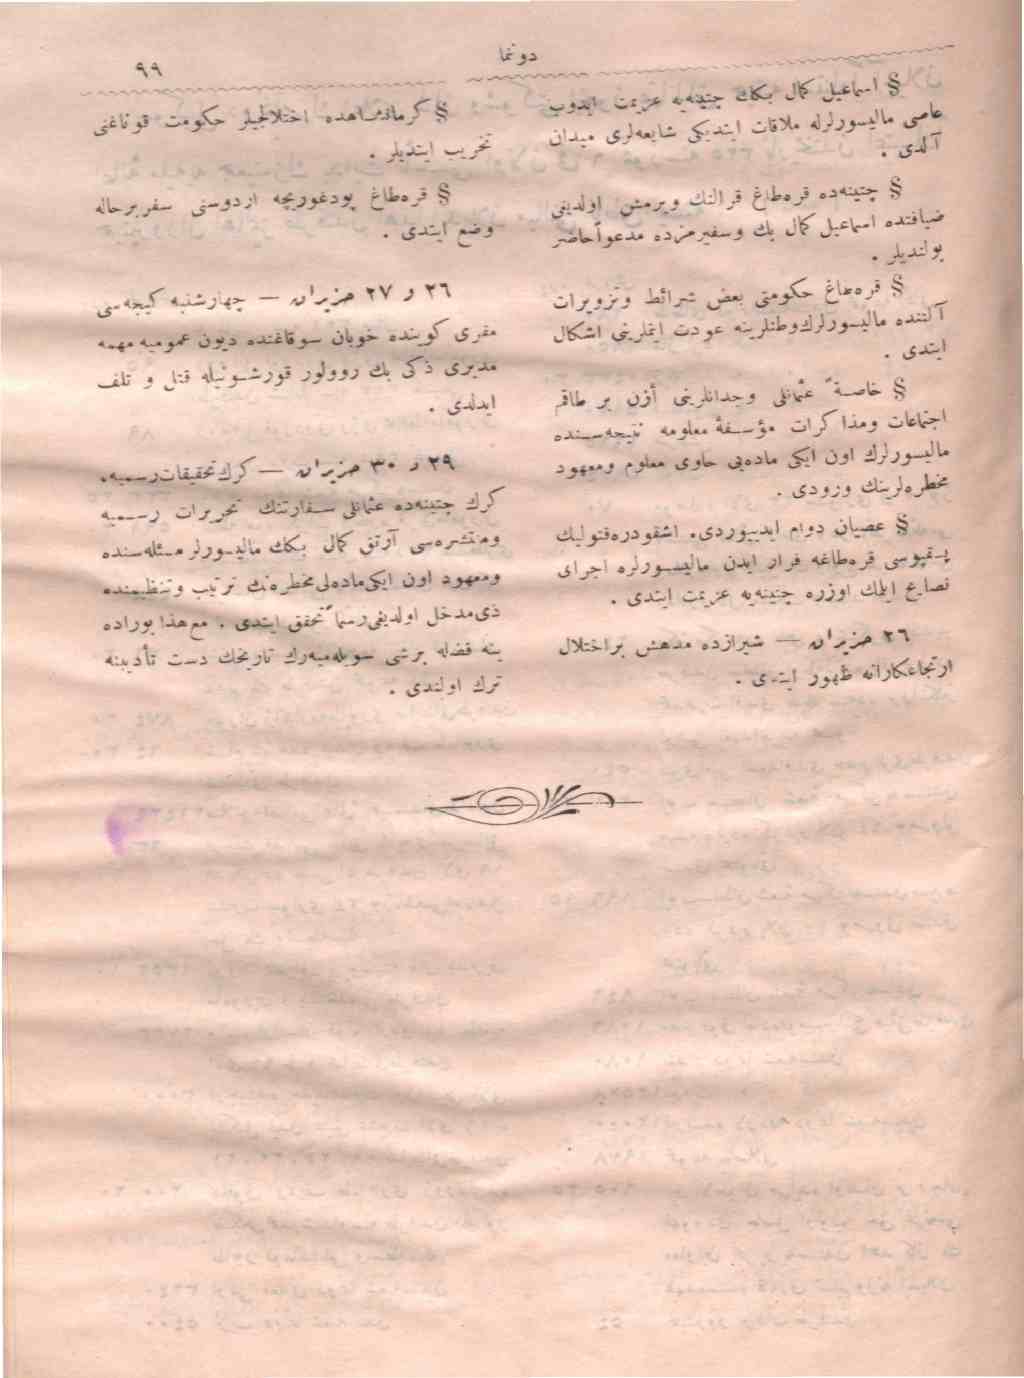 دوننما
٩٩
§ اسماعیل كمال بكك چتینه‌یه عزیمت ایدوب
عاصی مالیسورلرله ملاقات ایتدیكی شایعه‌لری میدان
آلدی .
§ چتینه‌ده قره‌طاغ قرالنك ویرمش اولدیغی
ضیافتده اسماعیل كمال بك وسفیرمزده مدعواً حاضر
بولندیلر .
§ قره‌طاغ حكومتی بعض شرائط وتزویرات
آلتنده مالیسورلرك وطنلرینه عودت ایتملرینی اشكال
ایتدی .
§ خاصةً عثمانلی وجدانلرینی أزن بر طاقم
اجتماعات ومذاكرات مؤسفهٔ معلومه نتیجه‌سنده
مالیسورلرك اون ایكی ماده‌یی حاوی معلوم ومعهود
مخطره‌لرینك ورودی .
§ عصیان دوام ایدییوردی. اشقودره قتولیك
پسقپوسی قره‌طاغه فرار ایدن مالیسورلره اجرای
نصایح ایلمك اوزره چتینه‌یه عزیمت ایتدی .
٢٦ حزیران — شیرازده مدهش بر اختلال
ارتجاعكارانه ظهور ایتدی .
§ كرمانشاهده اختلالجیلر حكومت قوناغنی
تخریب ایتدیلر .
§ قره‌طاغ پودغوریچه اردوسنی سفربر حاله
وضع ایتدی .
٢٦ و ٢٧ حزیران — چهارشنبه كیجه‌سی
مقری كوینده خوبان سوقاغنده دیون عمومیه مهمه
مدیری ذكی بك روولور قورشونیله قتل و تلف
ایدلدی .
٢٩ و ٣٠ حزیران — كرك تحقیقات رسمیه،
كرك چتینه‌ده عثمانلی سفارتنك تحریرات رسمیه
ومنتشره‌سی آرتق كمال بكك مالیسورلر مسئله‌سنده
ومعهود اون ایكی ماده‌لی مخطره‌نك ترتیب وتنظیمنده
ذی‌مدخل اولدیغی رسماً تحقق ایتدی . مع‌هذا بوراده
ینه فضله برشی سویله‌میه‌رك تاریخك دست تأدیبنه
ترك اولندی .